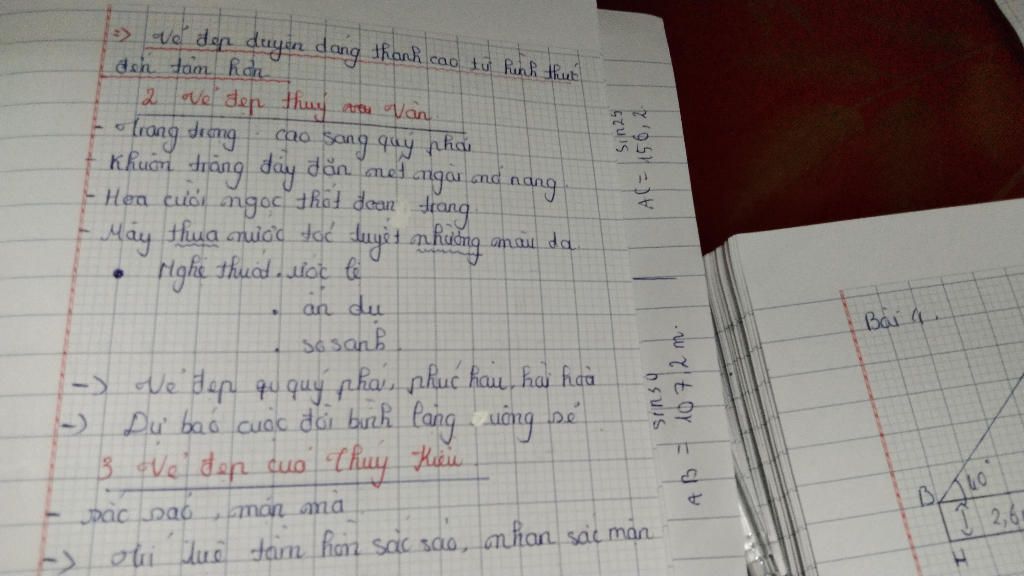 => Vẻ đẹp duyên dáng thanh cao từ hình thức
đến tâm hồn
2 Vẻ đẹp thuý Vân
- Trang trọng cao sang quý phái
- Khuôn trăng đầy đặn nét ngài nở nang
- Hoa cười ngọc thốt đoan trang
- Mây thua nước tóc tuyết nhường màu da
• Nghệ thuật . ước lệ
. ẩn dụ
. so sánh
-> Vẻ đẹp quý phái, phúc hậu, hài hoà
-> Dự báo cuộc đời bình lặng suông sẻ
3 Vẻ đẹp của Thuý Kiều
- sắc sảo, mặn mà
-> trí tuệ tâm hồn sắc sảo, nhan sắc mặn
sin25
AC = 156,2
sin34
AB = 1072 m.
Bài 4.
B 40°
2,6
H